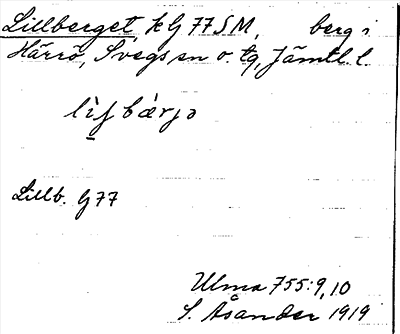 Lillberget, k G 77 SM, berg i
Härrö, Svegs sn o. tg, Jämtl. l.
Lillb. G 77
Ulma 755:9,10
S. Åsander 1919